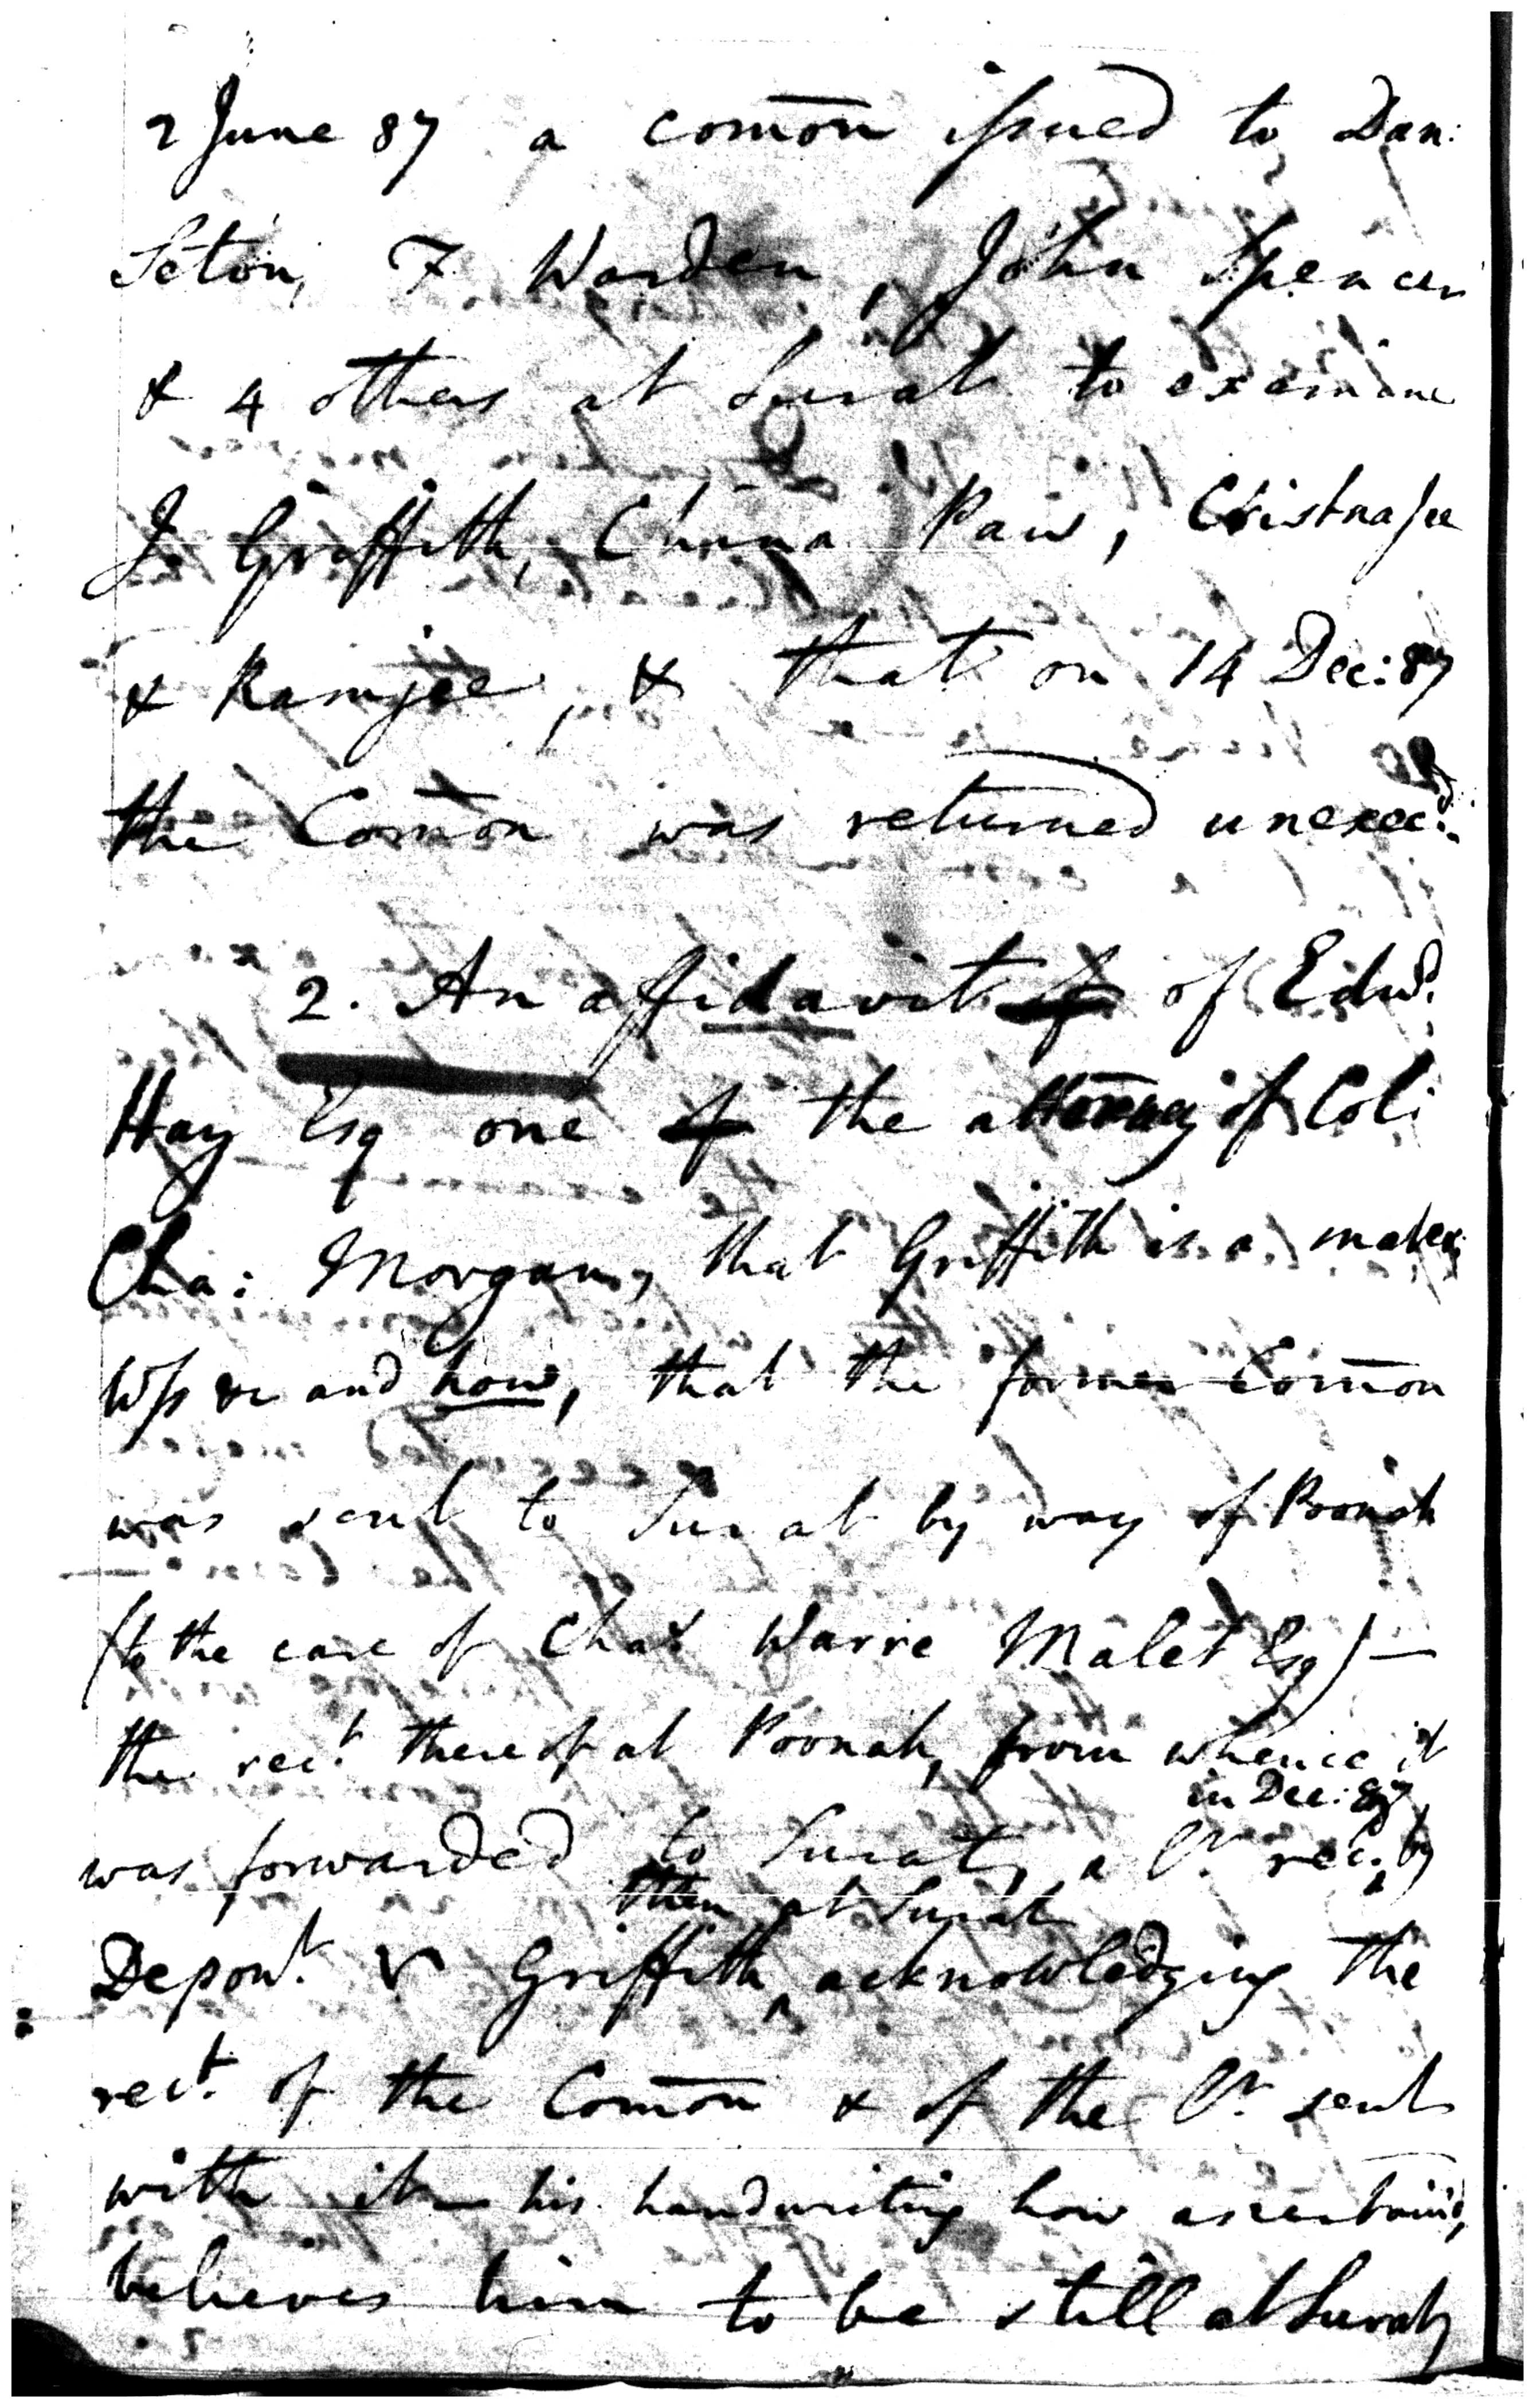 2 June 87 a com̄on issued to Dan:
Seton, F Warden, John Spencer
& 4 others at Surat to examine
J. Griffith, Chinna Paw, Cristnajee
& Ramjee, & that on 14 Dec: 87
the Com̄on was returned unexec.d
2. An affidavit of of Edwd.
Hay Esq one of the attorney of Col:
Cha: Morgan, that Griffith is a mater:
Wss &c and how, that the former Com̄on
was sent to Surat by way of Poonah
(to the care of Chas Warre Malet Esq) —
the rect. thereof at Poonah, from whence it
in Dec: 87
was forwarded to Surat, a lr. rec. by
then at Surat
Depont. Griffith acknowledging the
rect. of the Com̄on & of the lr. sent
with it — his handwriting how ascertain'd,
believes him to be still at Surat,